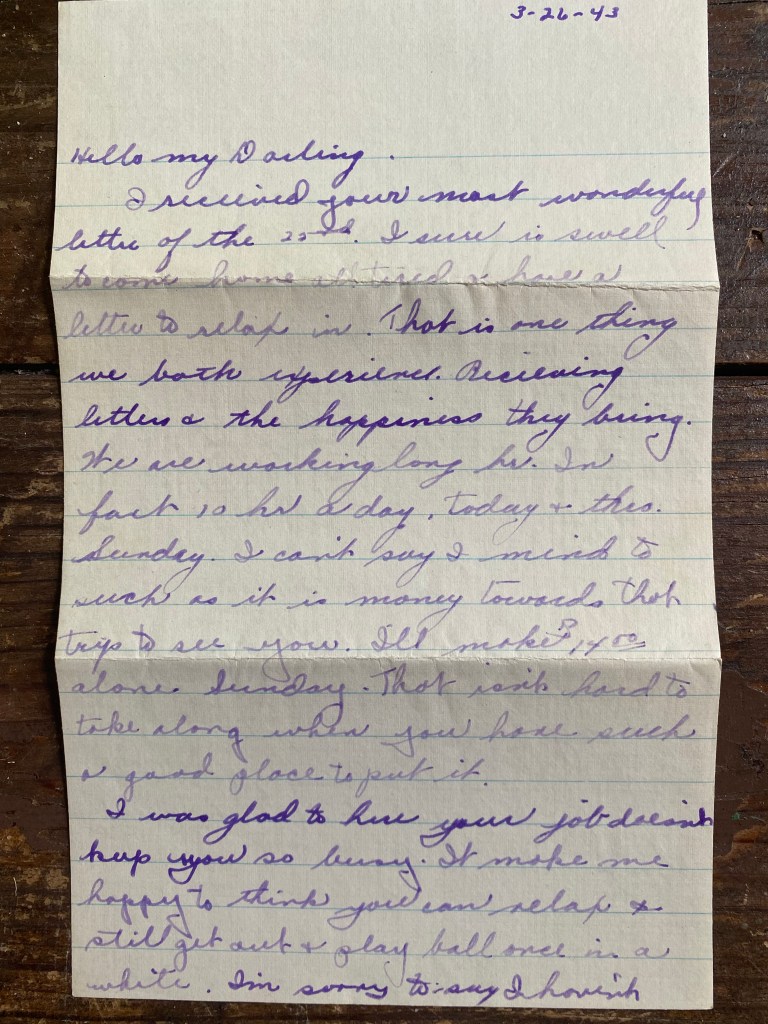 3-26-43
Hello my Darling.
I received your most wonderful
letter of the 22nd. I sure is swell
to come home all tired & have a
letter to relax in. That is one thing
we both experience. Recieving
letters & the happiness they bring.
We are working long hr. In
fact 10 hr a day, today & thro.
Sunday. I can't say I mind to
such as it is money towards that
trip to see you. I'll make $14.00
alone Sunday. That isn't hard to
take along when you have such
a good place to put it.
I was glad to here your job doesn't
keep you so busy. It make me
happy to think you can relax &
still get out & play ball once in a
while. I'm sorry to say I haven't